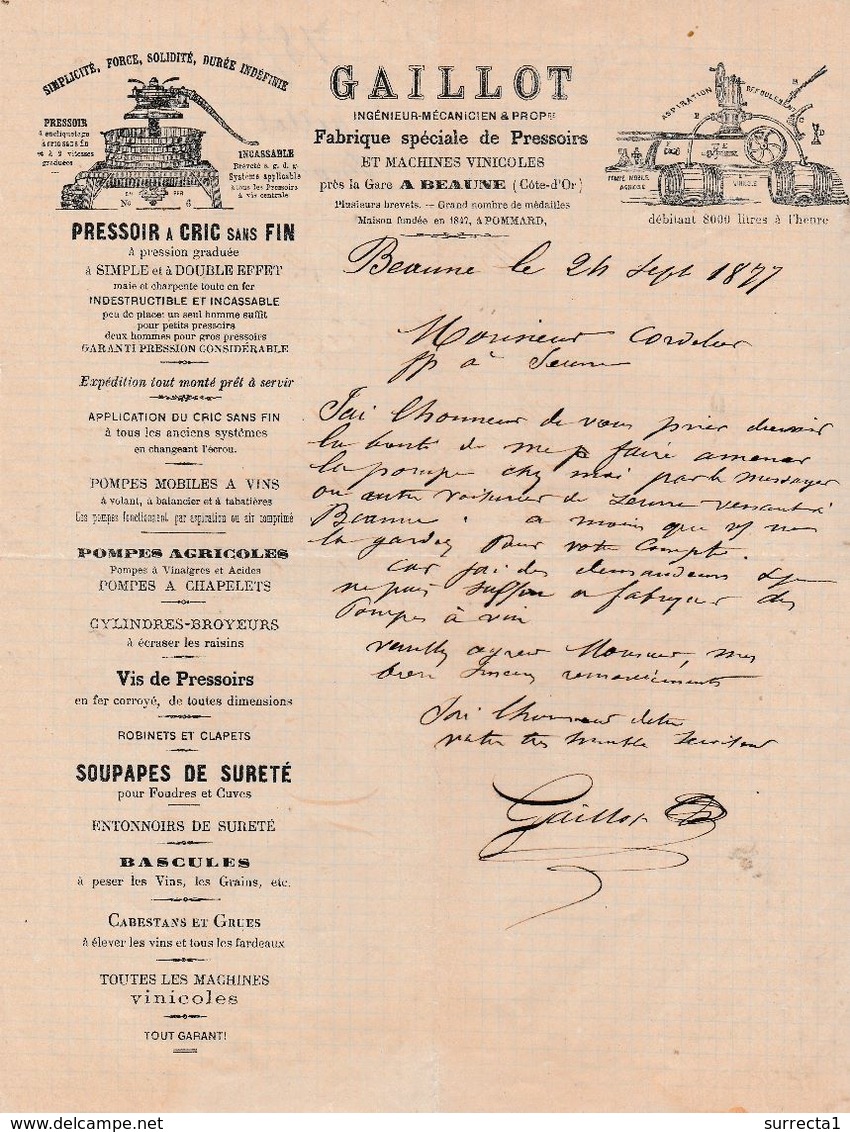 SIMPLICITÉ, FORCE, SOLIDITÉ, DURÉE INDÉFINIE
PRESSOIR
à encliquetage
à cric sans fin
et à 2 vitesses
graduées
INCASSABLE
Breveté s. g. d. g.
Système applicable
à tous les Pressoirs
à vis centrale
No 6
GAILLOT
INGÉNIEUR-MÉCANICIEN & PROPRE
Fabrique spéciale de Pressoirs
ET MACHINES VINICOLES
près la Gare A BEAUNE (Côte-d'Or)
Plusieurs brevets. — Grand nombre de médailles
Maison fondée en 1847, à POMMARD,
ASPIRATION REFOULEMENT
POMPE MOBILE
AGRICOLE
VINICOLE
débitant 8000 litres à l'heure
PRESSOIR A CRIC SANS FIN
à pression graduée
à SIMPLE et à DOUBLE EFFET
maie et charpente toute en fer
INDESTRUCTIBLE ET INCASSABLE
peu de place: un seul homme suffit
pour petits pressoirs
deux hommes pour gros pressoirs
GARANTI PRESSION CONSIDÉRABLE
Expédition tout monté prêt à servir
APPLICATION DU CRIC SANS FIN
à tous les anciens systèmes
en changeant l'écrou.
POMPES MOBILES A VINS
à volant, à balancier et à tabatières
Ces pompes fonctionnent par aspiration ou air comprimé
POMPES AGRICOLES
Pompes à Vinaigres et Acides
POMPES A CHAPELETS
CYLINDRES-BROYEURS
à écraser les raisins
Vis de Pressoirs
en fer corroyé, de toutes dimensions
ROBINETS ET CLAPETS
SOUPAPES DE SURETÉ
pour Foudres et Cuves
ENTONNOIRS DE SURETÉ
BASCULES
à peser les Vins, les Grains, etc.
CABESTANS ET GRUES
à élever les vins et tous les fardeaux
TOUTES LES MACHINES
vinicoles
TOUT GARANTI
Beaune le 24 Sept 1877
Monsieur Cordelier
à
J'ai l'honneur de vous prier d'avoir
la bonté de me faire amener
la pompe chez moi par le messager
ou autre voiturier de venant à
Beaune. a moins que vs ne
la gardez pour votre compte.
car j'ai des demandeurs &
ne puis suffire a fabriquer des
Pompes à vin
veuillez agréer Monsieur, mes
bien sincères remerciements
J'ai l'honneur d'etre
votre très humble serviteur
Gaillot
delcampe.net
surrecta1